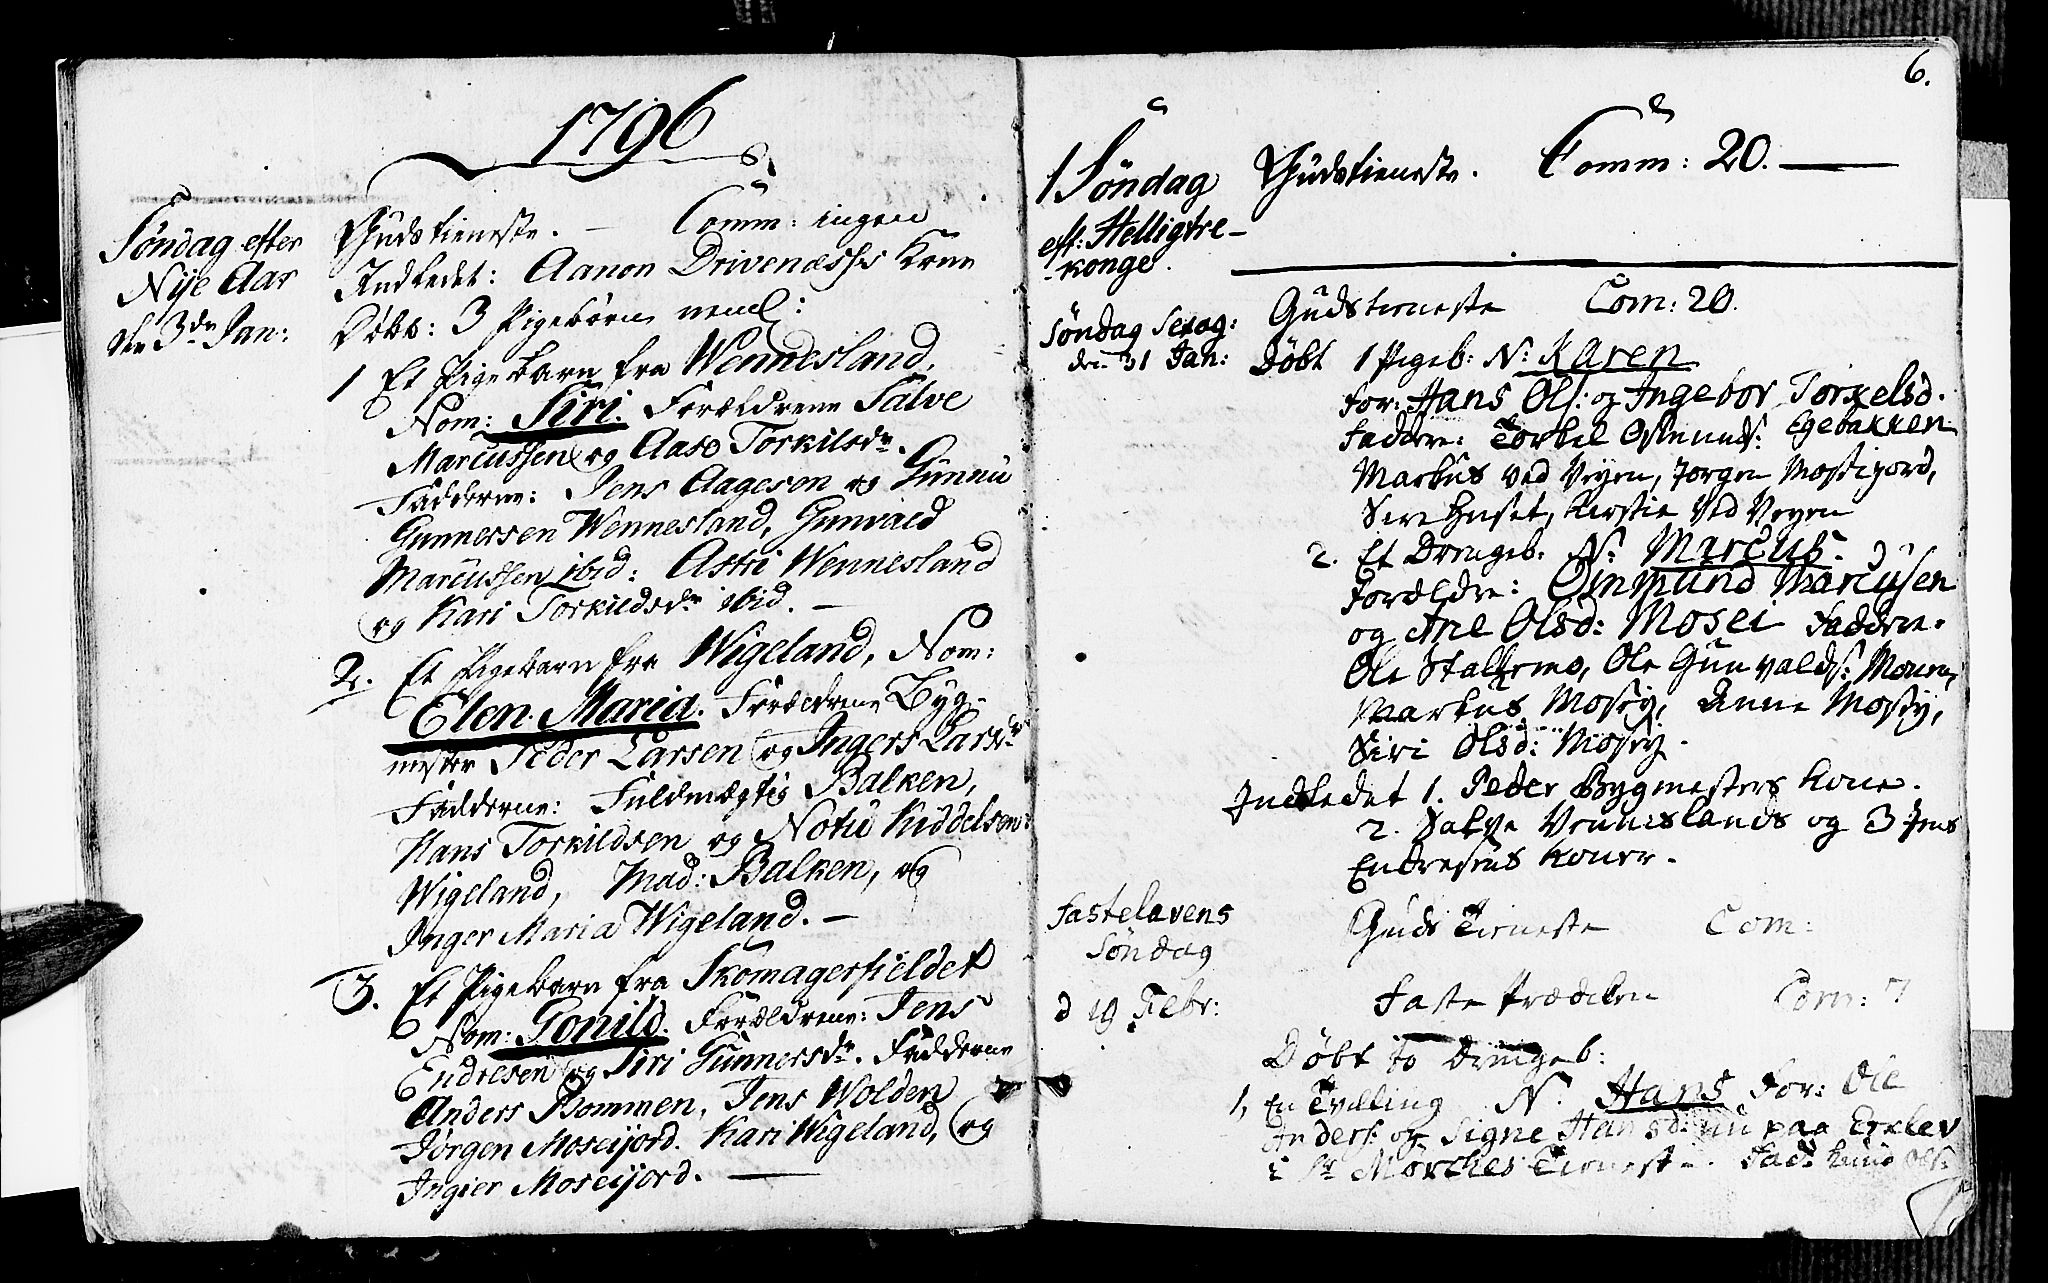 1796
Söndag efter
Nÿe Aar
den 3de Jan:
Gudstieneste. – Comm: ingen
Indledet: Aanon Drivenæsses Kone
Döbt: 3 Pigebörn neml:
1 Et Pigebarn fra Wennesland.
Nom: Siri. Forældrene Salve
Marcussen og Aase Torkilsdr.
Fadderne: Jens Aagesen og Gunnu
Gunnersen Wennesland, Gunvald
Marcussen ibid: Astri Wennesland
og Kari Torkildsdr ibid. –
2. Et Pigebarn fra Wigeland, Nom:
Elen Maria. Forældrene Byg-
mester Peder Larsen og Ingers Larsdr
Fadderne: Fuldmægtig Balken,
Hans Torkildsen og Notu Kiddelsen
Wigeland, Mad: Balken, og
Inger Maria Wigeland. –
3. Et Pigebarn fra Skomagerfieldet
Nom: Gonild. Forældrene: Jens
Endresen og Siri Gunnersdr. Fadderne
Anders Bommen, Jens Wolden
Jörgen Moseijord. Kari Wigeland, og
Ingier Moseijord. –
6.
1 Söndag
eft: Helligtre-
konge.
Gudstieneste. Comm: 20. –
Söndag Sexag:
den 31 Jan:
Gudstieneste Com: 20.
Döbt 1 Pigeb: N: Karen
For: Hans Ols: og Ingebor Torkelsd.
Faddre: Torkel Osmunds: Egebakken
Markus ved Veyen, Jorgen Mosijord,
Sire Huset, Kerstie ved Veyen
2. Et Drengeb. N: Marcus.
Forældre: Omund Marcusen
og Ane Olsd: Mosei Faddre.
Ole Stallemo, Ole Gunvalds: Mouen,
Markus Mosey, Anne Mosey,
Siri Olsd: Mosey.
Indledet 1. Peder Bygmesters Kone.
2. Salve Venneslands og 3 Jens
Endresens Koner.
Fastelavens
Söndag
Guds Tieneste Com:
d 19 Febr:
Faste Prædiken Com: 7
Döbt to Drengeb:
1, En Tvilling N: Hans For: Ole
Anders: og Signe Hansd: nu paa Exelev
i Sr Mörches Tieneste. Fad: Knud Ols: